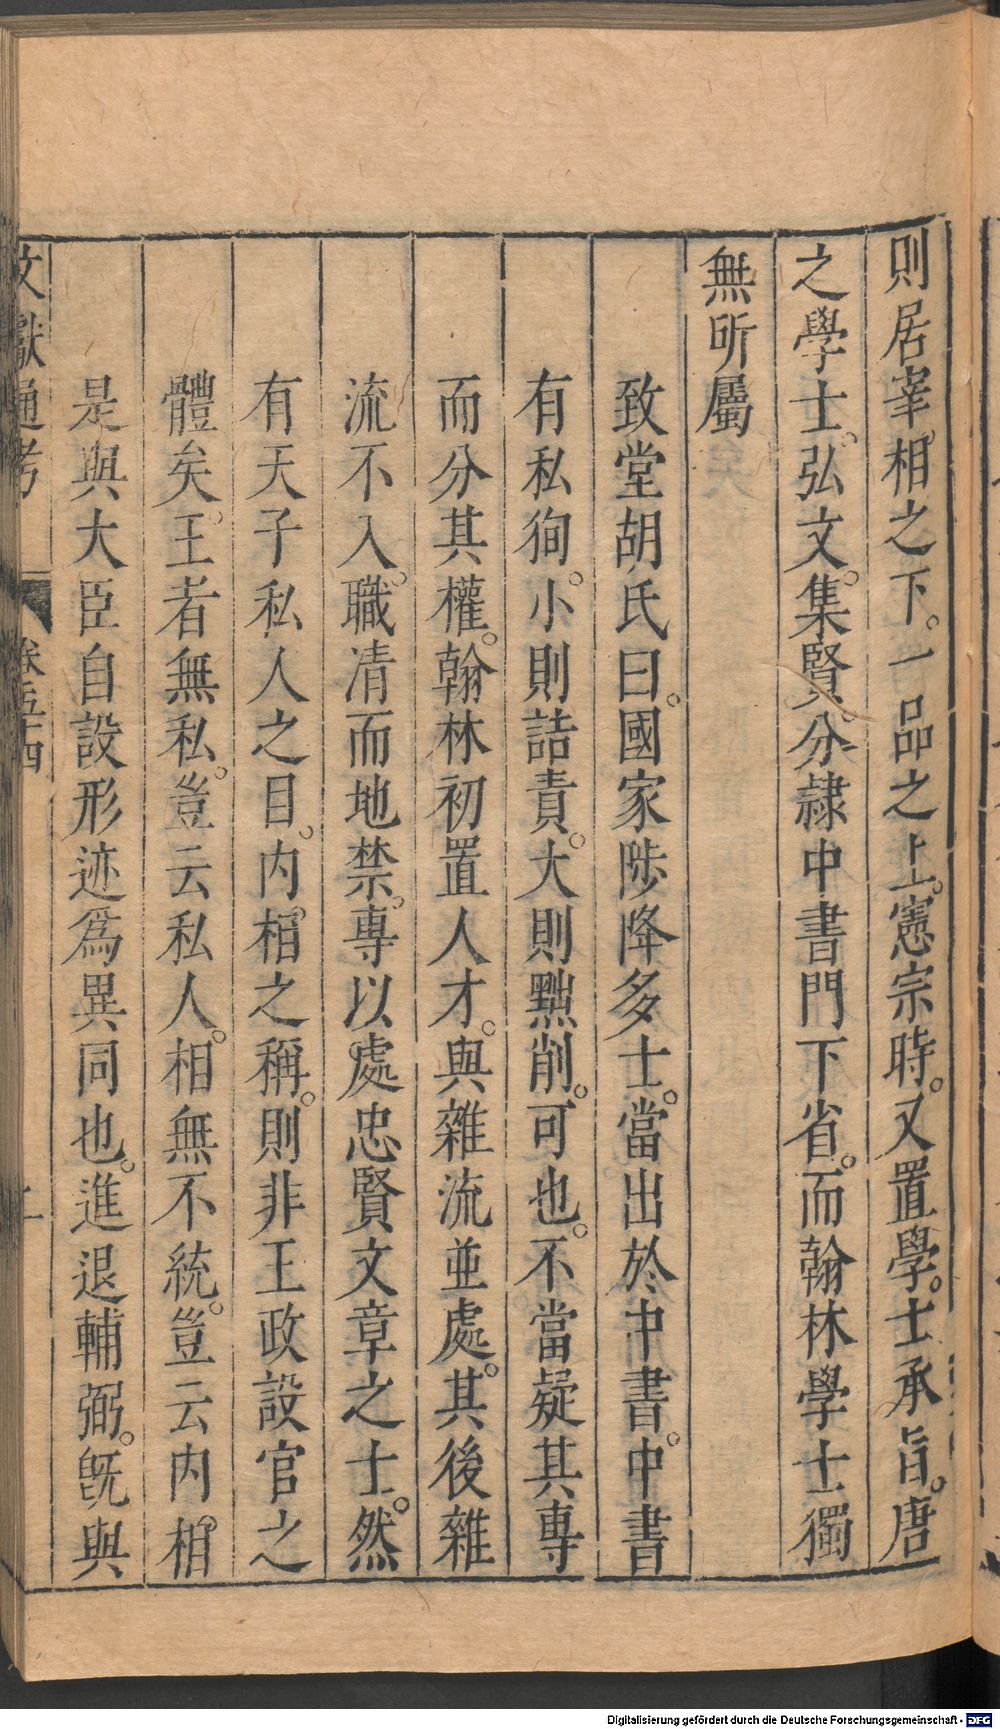 則居宰相之下。一品之上。憲宗時。又置學士承旨。唐
之學士。弘文。集賢。分隷中書門下省。而翰林學士獨
無所屬
致堂胡氏曰。國家陟降多士。當出於中書。中書
有私徇。小則詰責。大則黜削。可也。不當疑其專
而分其權。翰林初置人才。與雜流並處。其後雜
流不入。職清而地禁。專以處忠賢文章之士。然
有天子私人之目。内相之稱。則非王政設官之
體矣。王者無私。豈云私人。相無不統。豈云内相。
是與大臣自設形迹爲異同也。進退輔弼。旣與
文獻通考 卷五十四
Digitalisierung gefördert durch die Deutsche Forschungsgemeinschaft - DFG